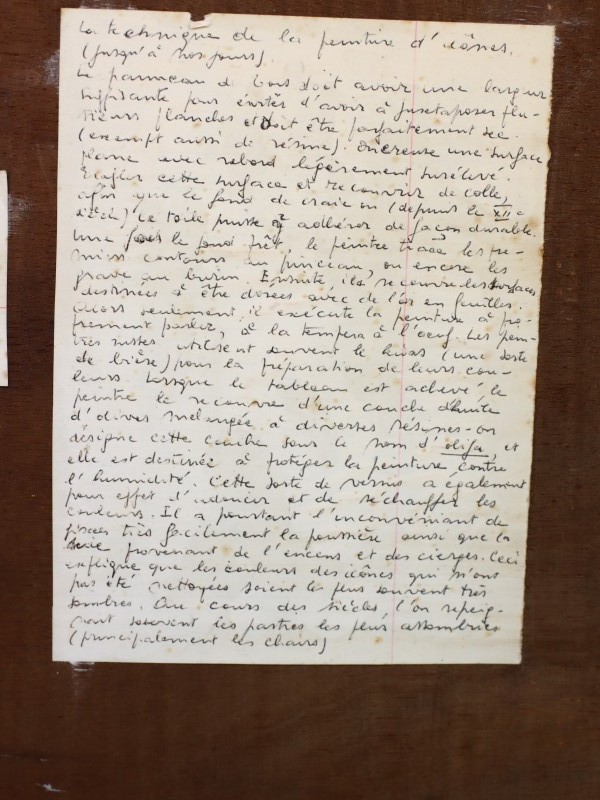 La technique de la peinture d'icônes.
(jusqu'à nos jours).
Le panneau de bois doit avoir une largeur
suffisante pour éviter d'avoir à juxtaposer plu-
sieurs planches et doit être parfaitement sec
(exempt aussi de résine). On creuse une surface
plane avec rebord légèrement surélevé.
cette surface et recouvrir de colle,
afin que le fond de craie ou (depuis le XII e
siècle) le toile puisse y adhérer de façon durable.
Une fois le fond prêt, le peintre trace les pre-
miers contours au pinceau, ou encore les
grave au burin. Ensuite, il recouvre les surfaces
destinées à être dorées avec de l'or en feuilles.
Alors seulement, il exécute la peinture à pro-
prement parler, à la tempera à l'oeuf. Les pein-
tres russes utilisent souvent le kwas (une sorte
de bière) pour la préparation de leurs cou-
leurs. Lorsque le tableau est achevé, le
peintre le recouvre d'une couche d'huile
d'olives mélangée à diverses résines - on
désigne cette couche sous le nom d'olifa, et
elle est destinée à protéger la peinture contre
l'humidité. Cette sorte de vernis a également
pour effet d'adoucir et de réchauffer les
couleurs. Il a pourtant l'inconvénient de
fixer très facilement la poussière ainsi que la
suie provenant de l'encens et des cierges. Ceci
explique que les couleurs des icônes qui n'ont
pas été nettoyées soient le plus souvent très
sombres. Au cours des siècles, l'on repeig-
nait souvent les parties les plus assombries
(principalement les chairs)